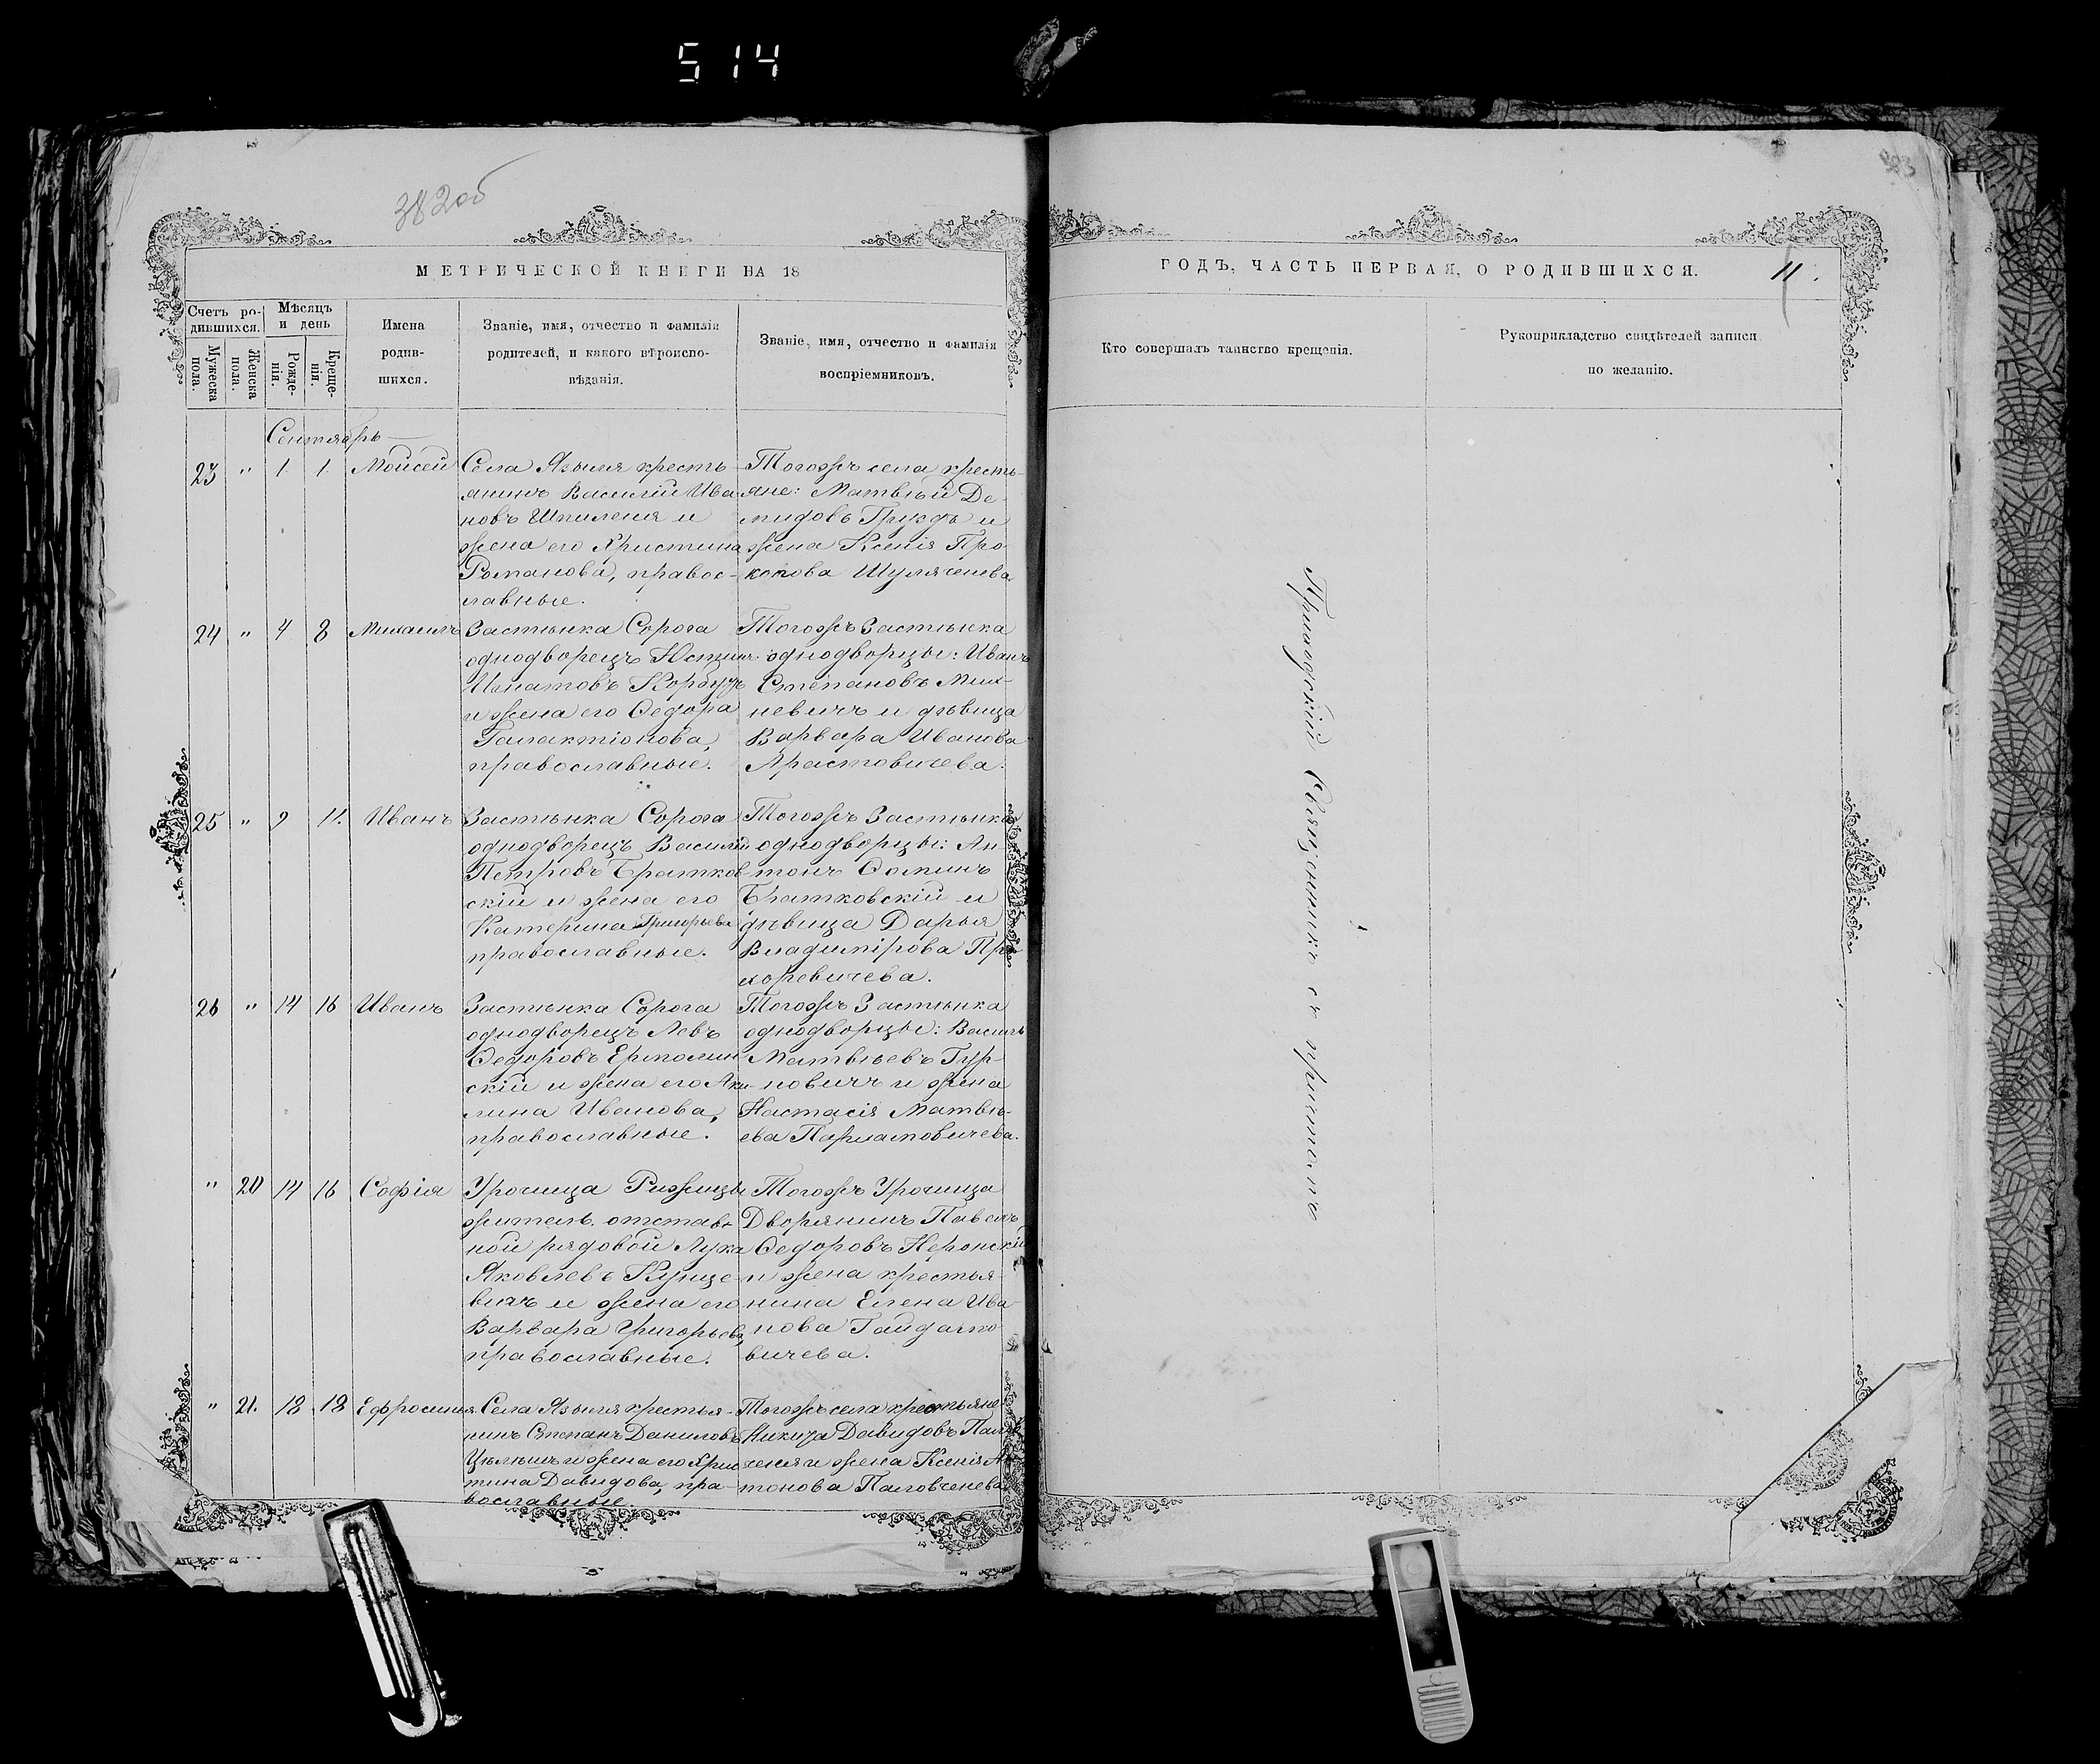 514
382об
383
МЕТРИЧЕСКОЙ КНИГИ НА 18
ГОДЪ, ЧАСТЬ ПЕРВАЯ, О РОДИВШИХСЯ.
11.
Счетъ ро-
дившихся.
Мужеска
пола.
Женска
пола.
Мѣсяцъ
и день
Рожде-
нія.
Креще-
нія.
Имена
родив-
шихся.
Званіе, имя, отчество и фамилія
родителей, и какого вѣроиспо-
вѣданія.
Званіе, имя, отчество и фамилія
воспріемниковъ.
Кто совершалъ таинство крещенія.
Рукоприкладство свидѣтелей записи
по желанію.
Сентябрь
23 " 1 1 Моисей
Села Языля кресть-
янинъ Василій Ива-
новъ Шпиленя и
жена его Христина
Романова, правос-
лавные.
Тогожъ села кресть-
яне: Матвѣй Де-
мидовъ Груздъ и
жена Ксенія Про-
копова Шуляченева
24 " 4 8 Михаилъ
Застѣнка Сорога
однодворецъ Юстинъ
Игнатовъ Корбутъ
и жена его Ѳедора
Галактіонова,
православные.
Тогожъ Застѣнка
однодворцы: Иванъ
Степановъ Мих-
невичъ и дѣвица
Варвара Иванова
Храстовичева.
25 " 9 11. Иванъ
Застѣнка Сорога
однодворецъ Василій
Петровъ Братков-
скій и жена его
Катерина Григорьева
православные.
Тогожъ Застѣнка
однодворцы: Ан-
тонъ Ѳоминъ
Братковскій и
дѣвица Дарья
Владимірова Про-
хоревичева.
26 " 14 16 Иванъ
Застѣнка Сорога
однодворецъ Левъ
Ѳедоровъ Ермолин-
скій и жена его Аку-
лина Иванова,
православные.
Тогожъ Застѣнка
однодворцы: Василь
Матвѣевъ Гур-
новичъ и жена
Настасія Матвѣ-
ева Пармановичева.
" 20 14 16 Софія
Урочища Рижицы
житель отстав-
ной рядовой Лука
Яковлевъ Купце-
вичъ и жена его
Варвара Григорьева,
православные.
Тогожъ Урочища
Дворянинъ Павелъ
Ѳедоровъ Неронскій
и жена крестья-
нина Елена Ива-
нова Гайдалко-
вичева.
" 21. 18 18 Ефросинія
Села Языля крестья-
нинъ Степанъ Даниловъ
Цѣлѣшъ и жена его Хрис-
тина Давидова, пра-
вославные.
Тогожъ села крестьяне
Никита Давидовъ
и жена Ксенія
тонова Паловченева
Приходскій Священникъ съ причтомъ